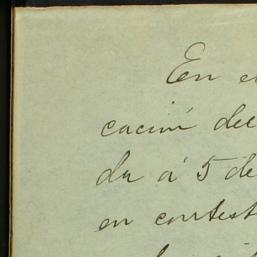 En e
cación del
da á 5 de
en contest